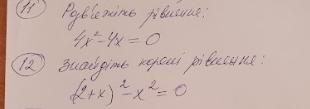 11 Розв'яжіть рівняння:
4x² - 4x = 0
12 Знайдіть корені рівняння:
(2+x)² - x² = 0